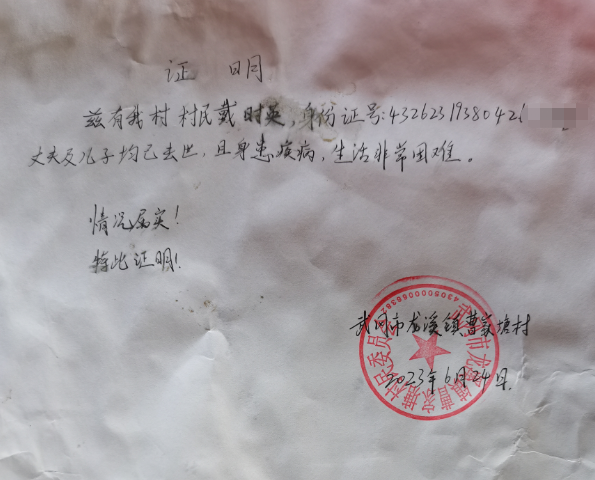 证 明
兹有我村 村民戴时英,身份证号:43262319380421
丈夫及儿子均已去世,且身患疾病,生活非常困难。
情况属实!
特此证明!
武冈市龙溪镇曹家塘村
2023年6月24日